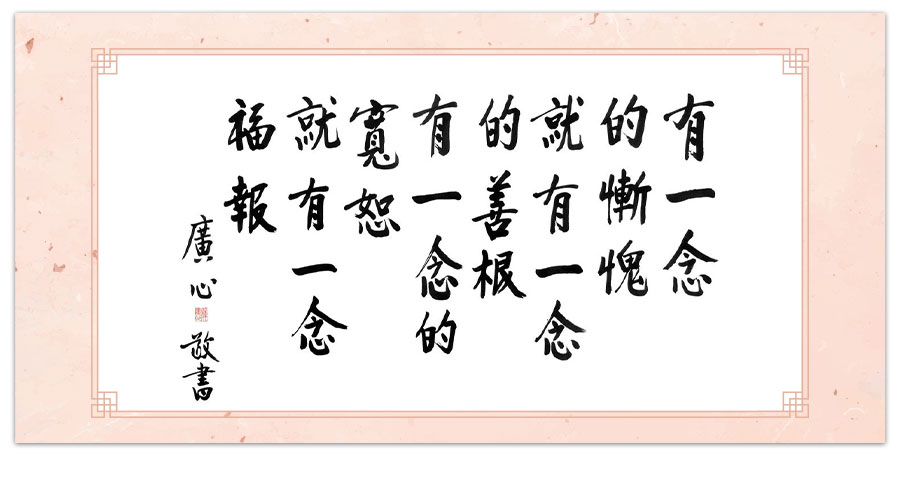 有一念
的慚愧
就有一念
的善根
有一念的
寬恕
就有一念
福報
廣心敬書